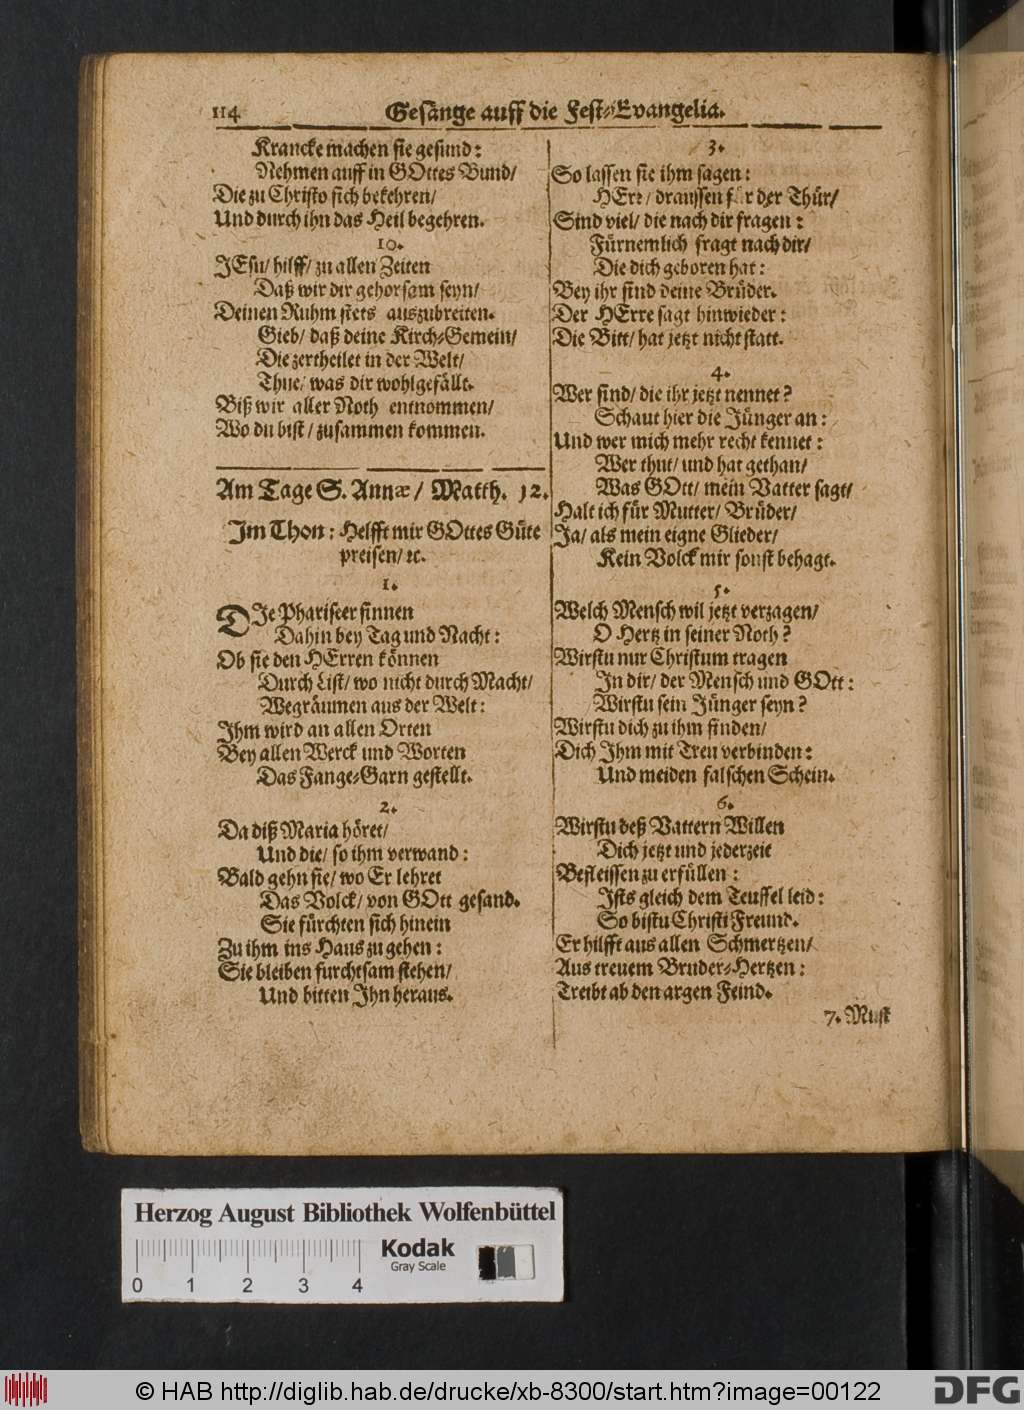 114 Gesänge auff die Fest-Evangelia.
Krancke machen sie gesund:
Nehmen auff in GOttes Bund/
Die zu Christo sich bekehren/
Und durch ihn das Heil begehren.
10.
JEsu/ hilff/ zu allen Zeiten
Daß wir dir gehorsam seyn/
Deinen Ruhm stets auszubreiten.
Gieb/ daß deine Kirch-Gemein/
Die zertheilet in der Welt/
Thue/ was dir wohlgefällt.
Biß wir aller Noth entnommen/
Wo du bist/ zusammen kommen.
Am Tage S. Annæ/ Matth. 12.
Im Thon: Helfft mir GOttes Güte
preisen/ ꝛc.
1.
DIe Phariseer sinnen
Dahin bey Tag und Nacht:
Ob sie den HErren können
Durch List/ wo nicht durch Macht/
Wegräumen aus der Welt:
Ihm wird an allen Orten
Bey allen Werck und Worten
Das Fange-Garn gestellt.
2.
Da diß Maria höret/
Und die/ so ihm verwand:
Bald gehn sie/ wo Er lehret
Das Volck/ von GOtt gesand.
Sie fürchten sich hinein
Zu ihm ins Haus zu gehen:
Sie bleiben furchtsam stehen/
Und bitten Ihn heraus.
3.
So lassen sie ihm sagen:
HErꝛ/ draussen für der Thür/
Sind viel/ die nach dir fragen:
Fürnemlich fragt nach dir/
Die dich geboren hat:
Bey ihr sind deine Brüder.
Der HErre sagt hinwieder:
Die Bitt/ hat jetzt nicht statt.
4.
Wer sind/ die ihr jetzt nennet?
Schaut hier die Jünger an:
Und wer mich mehr recht kennet:
Wer thut/ und hat gethan/
Was GOtt/ mein Vatter sagt/
Halt ich für Mutter/ Brüder/
Ja/ als mein eigne Glieder/
Kein Volck mir sonst behagt.
5.
Welch Mensch wil jetzt verzagen/
O Hertz in seiner Noth?
Wirstu nur Christum tragen
In dir/ der Mensch und GOtt:
Wirstu sein Jünger seyn?
Wirstu dich zu ihm finden/
Dich Ihm mit Treu verbinden:
Und meiden falschen Schein.
6.
Wirstu deß Vattern Willen
Dich jetzt und jederzeit
Befleissen zu erfüllen:
Ists gleich dem Teuffel leid:
So bistu Christi Freund.
Er hilfft aus allen Schmertzen/
Aus treuem Bruder-Hertzen:
Treibt ab den argen Feind.
7. Must
Herzog August Bibliothek Wolfenbüttel
Kodak
Gray Scale
0 1 2 3 4
© HAB http://diglib.hab.de/drucke/xb-8300/start.htm?image=00122
DFG